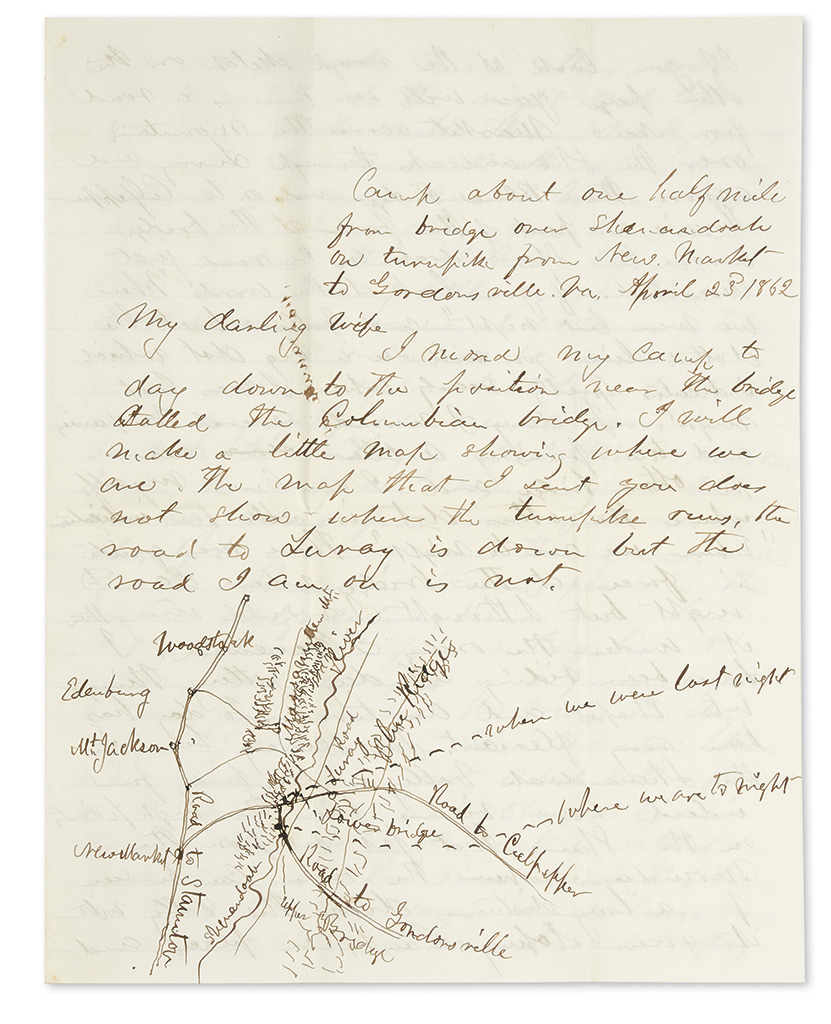 Camp about one half mile
from bridge over Shenandoah
on turnpike from New Market
to Gordonsville. Va. April 23d 1862
My darling Wife
I moved my camp to
day down to the position near the bridge
called the Columbian bridge. I will
make a little map showing where we
are. The map that I sent you does
not show where the turnpike runs, the
road to Luray is down but the
road I am on is not.
Woodstock
Edenburg
Mt Jackson
New Market
Road to Staunton
Shenandoah
River
Luray Road
Blue Ridge
where we were last night
where we are to night
Lower bridge
Road to Culpepper
Road to Gordonsville
upper Bridge